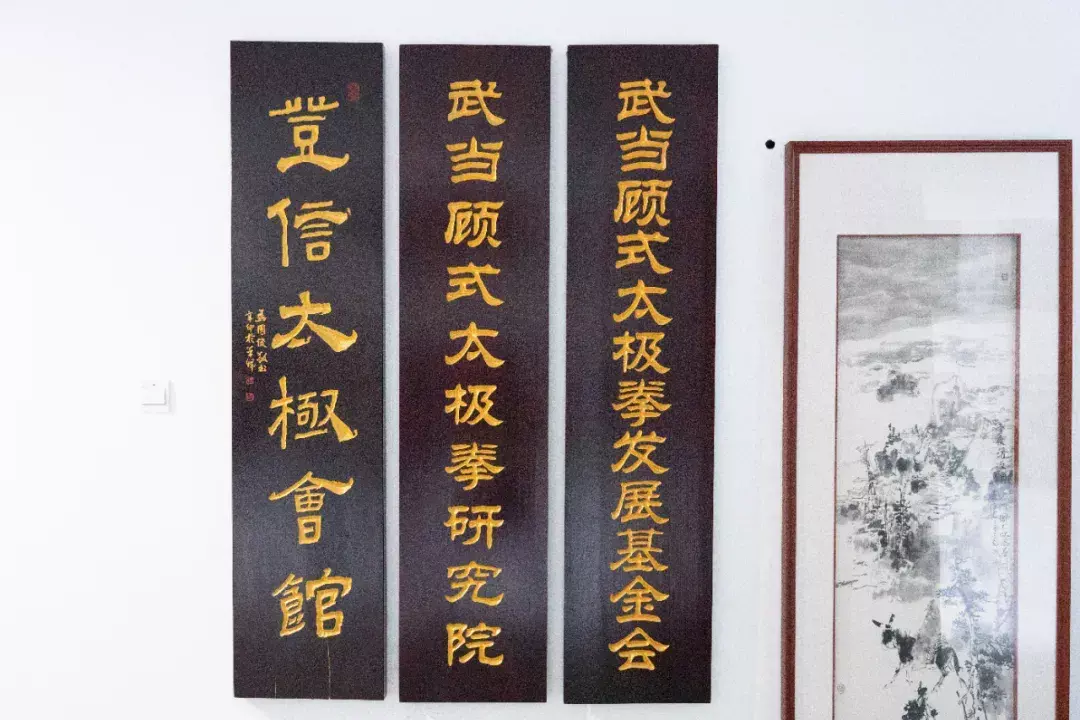 信太極會館
武当顾式太极拳研究院
武当顾式太极拳发展基金会